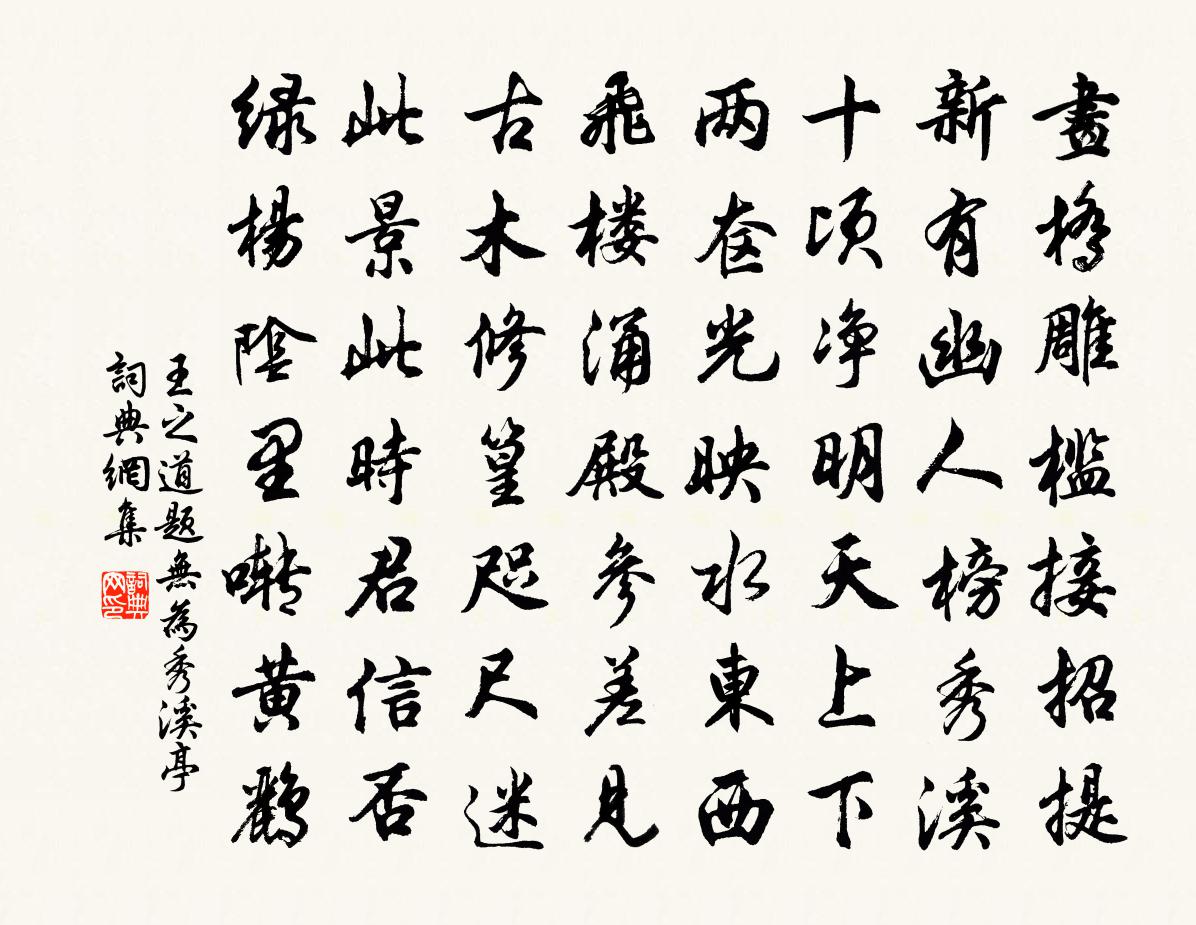 畫橋雕檻接招提
新有幽人榜秀溪
十顷净明天上下
两奁光映水東西
飛楼涌殿參差見
古木修篁咫尺迷
此景此時君信否
绿楊陰里囀黄鸝
王之道题無為秀溪亭
詞典網集
詞典网印